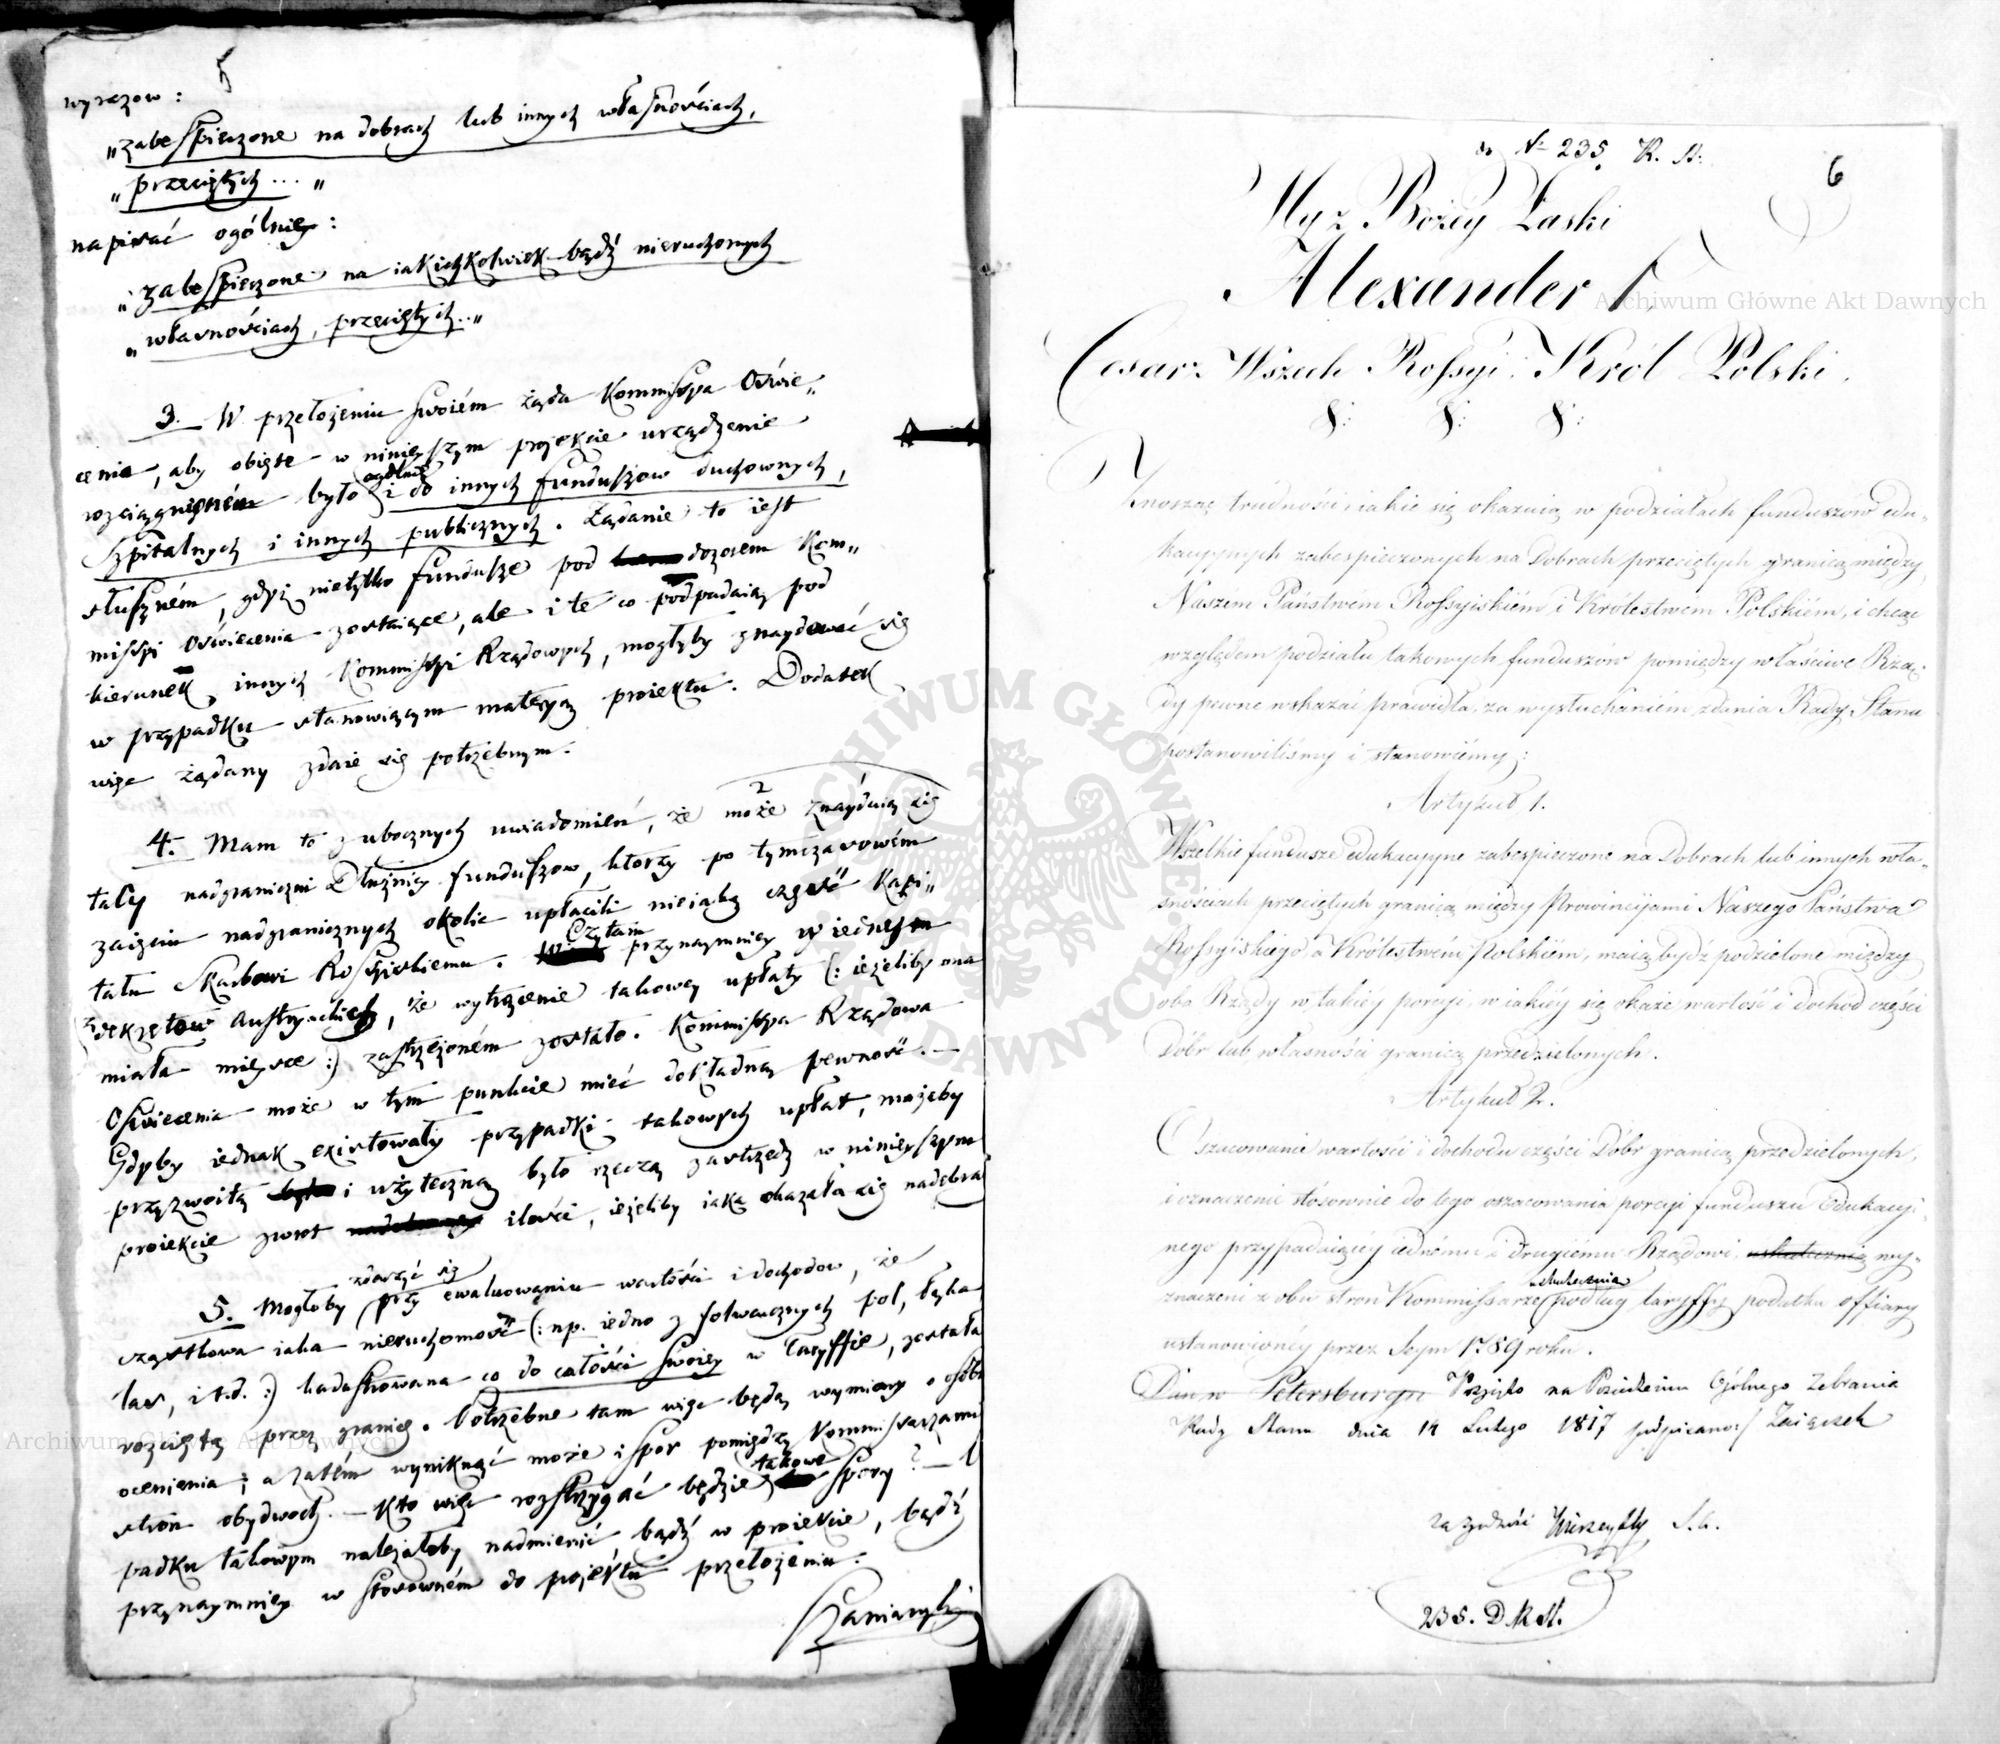 wyrazow :
„zabespieczone na dobrach lub innych własnościach,
„przeciętych... „
napisać ogólniey :
„zabespieczone na iakichkolwiek bądź nieruchomych
„własnościach, przeciętych.. „
3. W przełożeniu swoiém żąda Kommissya Oświe„
cenia, aby obięte w ninieyszym projekcie urządzenie
rozciągnioném było ogólnie i do innych funduszow duchownych,
szpitalnych i innych publicznych. Żądanie to iest
słuszném, gdyż nietylko fundusze pod dozorem Kom„
missyi Oświecenia zostaiące, ale i te co podpadaią pod
kierunek innych Kommissyi Rządowych, mogłyby znaydować się
w przypadku stanowiącym materyą proiektu. Dodatek
więc żądany zdaie się potrzebnym.
4. Mam to z ubocznych uwiadomień, że może znayduią się
tacy nadgraniczni Dłużnicy funduszow, którzy po tymczasowém
zaięciu nadgranicznych okolic upłacili nieiaką część Kapi„
tału Skarbowi Rossyiskiemu. Czytam przynaymniey w iednym
z dekretów Austryackich, że wytrącenie takowey upłaty (: ieżeliby ona
miała mieysce :) zastrzeżoném zostało. Kommissya Rządowa
Oświecenia może w tym punkcie mieć dokładną pewność. —
Gdyby iednak existowały przypadki takowych upłat, możeby
przyzwoitą i użyteczną było rzeczą zastrzedz w ninieyszym
proiekcie zwrot ilości, ieżeliby iaka okazała się nadebrą
5. Mogłoby zdarzyć się przy ewaluowaniu wartości i dochodow, że
cząstkowa iaka nieruchomość (: np. iedno z folwarcznych pol, łąka
las, i t.d. :) kadastrowana co do całości swoiey w Taryffie, została
rozcięta przez granicę. Potrzebne tam więc będą wymiary o osóbn
ocenienia ; a zatém wyniknąć może i spor pomiędzy Kommissarzami
stron obydwoch. — Kto więc rozstrzygać będzie takowe spory ? —
padku takowym należałoby nadmienić, bądź w proiekcie, bądź
przynaymniey w stosowném do projektu przełożeniu.
Szaniawski
N. 235. R. St.
6
My z Bożey Łaski
Alexander I.
Cesarz Wszech Rossyi. Król Polski.
&: &: &:
Znosząc trudności iakie się okazuią w podziałach funduszow edu„
kacyynych zabezpieczonych na Dobrach przeciętych granicą między
Naszem Państwem Rossyiskiém i Królestwem Polskiém, i chcąc
względem podziału takowych funduszów pomiędzy właściwe Rzą„
dy pewne wskazać prawidła, za wysłuchaniém zdania Rady Stanu
postanowiliśmy i stanowiémy :
Artykuł 1.
Wszelkie fundusze edukacyyne zabespieczone na Dobrach lub innych wła„
snościach przeciętych granicą między Prowincyjami Naszego Państwa
Rossyiskiego, a Królestwem Polskiém, maią bydź podzielone między
oba Rządy w takiéy porcyi, w iakiéy się okaże wartość i dochód części
Dóbr lub własności granicą przedzielonych.
Artykuł 2.
Oszacowanie wartości i dochodu części Dóbr granicą przedzielonych,
i oznaczenie stósownie do tego oszacowania porcyi funduszu Edukacyi„
nego przypadaiącéy iednému i drugiému Rządowi, uskutecznią wy„
znaczeni z obu stron Kommissarze uskutecznią podług taryffy podatku offiary
ustanowionéy przez Seym 1789 roku.
Dan w Petersburgu Przyięto na Posiedzeniu Ogólnego Zebrania
Rady Stanu dnia 14 Lutego 1817 podpisano :/ Zaiączek
Za zgodność
235. D.R.St.
Archiwum Główne Akt Dawnych
Archiwum Główne Akt Dawnych
ARCHIWUM GŁÓWNE AKT DAWNYCH